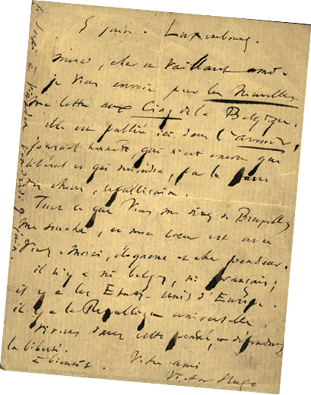 5 juin. Luxembourg.
Merci, cher et vaillant ami.
je vous envoie pour les Nouvelles
ma lettre aux Cinq de la Belgique.
elle est publiée ici dans l'avenir,
journal honnête, qui n'est encore que
libéral et qui deviendra, par la force
des choses, républicain.
Tout ce que vous me dites de Bruxelles
me touche, et mon cœur est avec
vous. Merci, éloquent et cher penseur.
il n'y a ni belges, ni français;
il y a les États-Unis d'Europe,
il y a la République universelle,
vivons dans cette pensée, et défendons
la liberté.
à bientôt. Votre ami
Victor Hugo